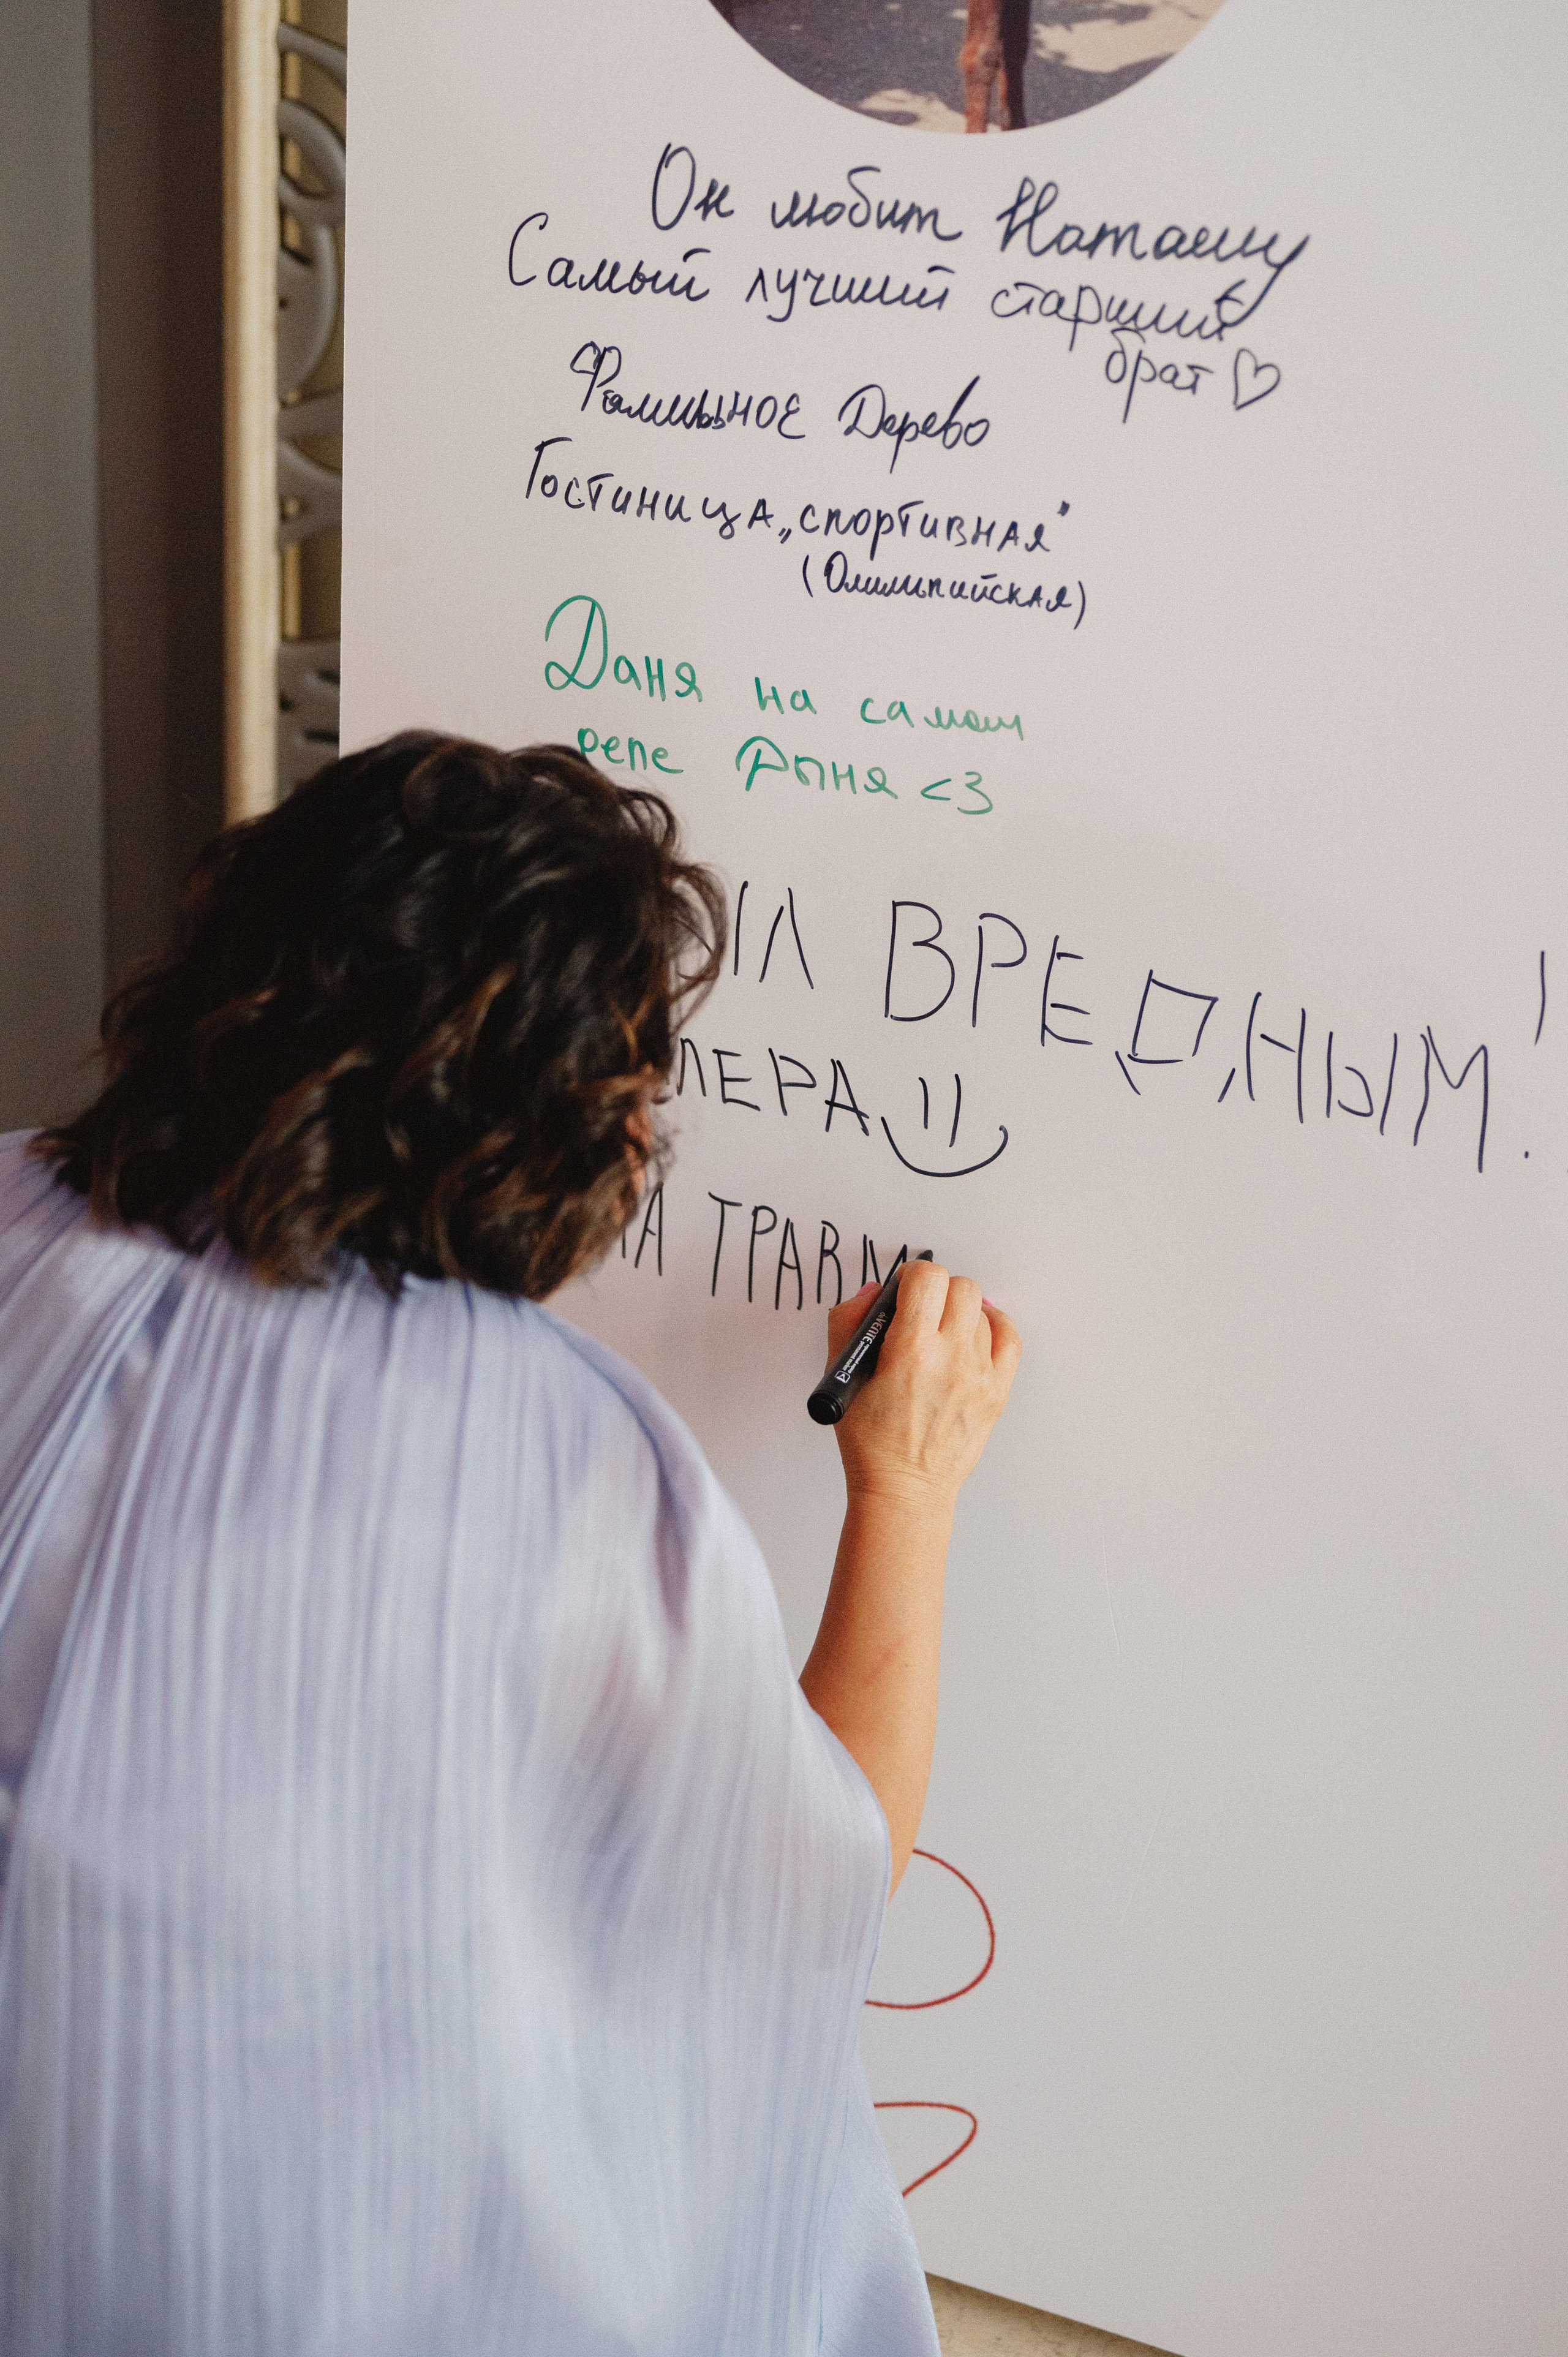 Он любит Наташу
Самый лучший старший
брат ♡
Дерево
Гостиница „спортивная"
(Олимпийская)
Даня на самом
репе Дыня <3
ВРЕДНЫМ!
ТРАВМ